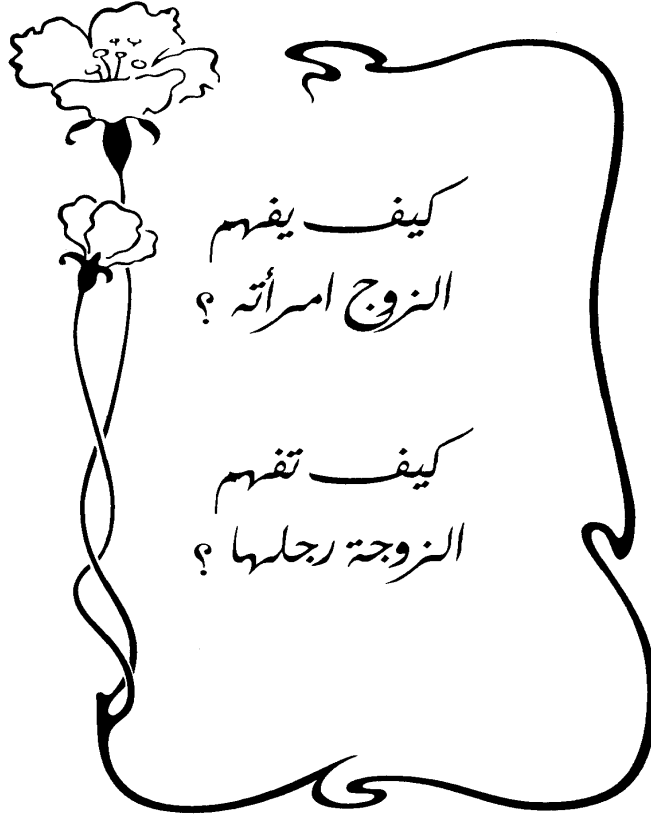 كيف يفهم
الزوج امرأته ؟
كيف تفهم
الزوجة رجلها ؟